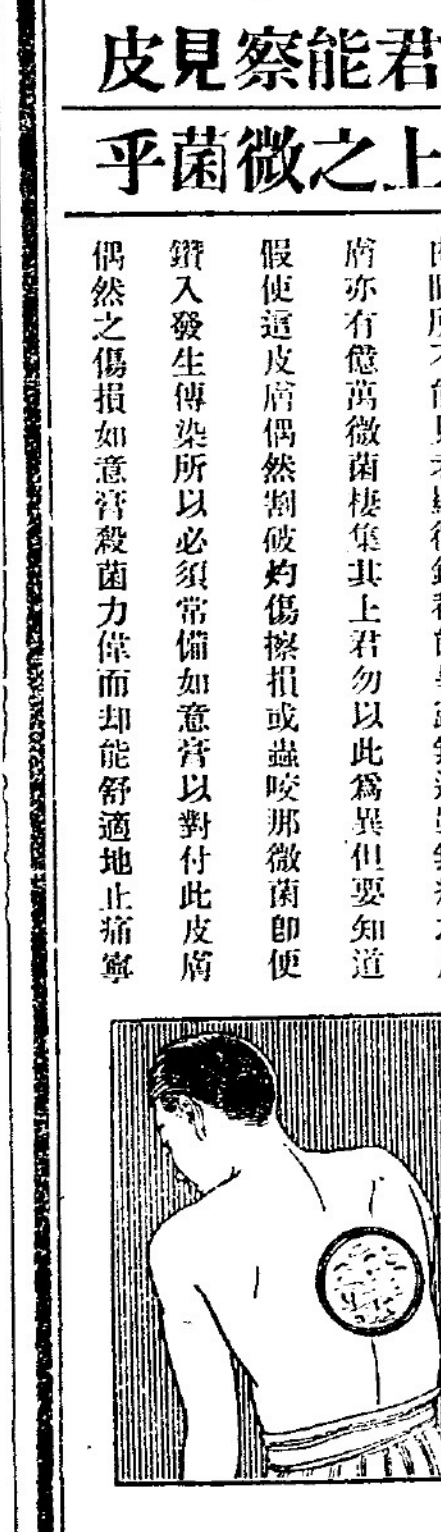 君能察見皮
上之微菌乎
膚亦有億萬微菌棲集其上君勿以此爲異但要知道
假使這皮膚偶然割破灼傷擦損或蟲咬那微菌卽便
鑽入發生傳染所以必須常備如意膏以對付此皮膚
偶然之傷損如意膏殺菌力偉而却能舒適地止痛寧